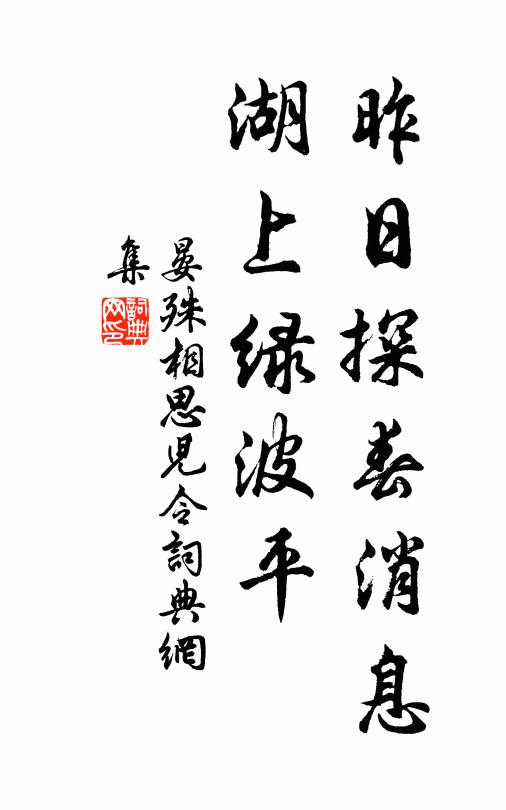 昨日探春消息
湖上绿波平
晏殊相思兒令詞典網
集
詞典網印